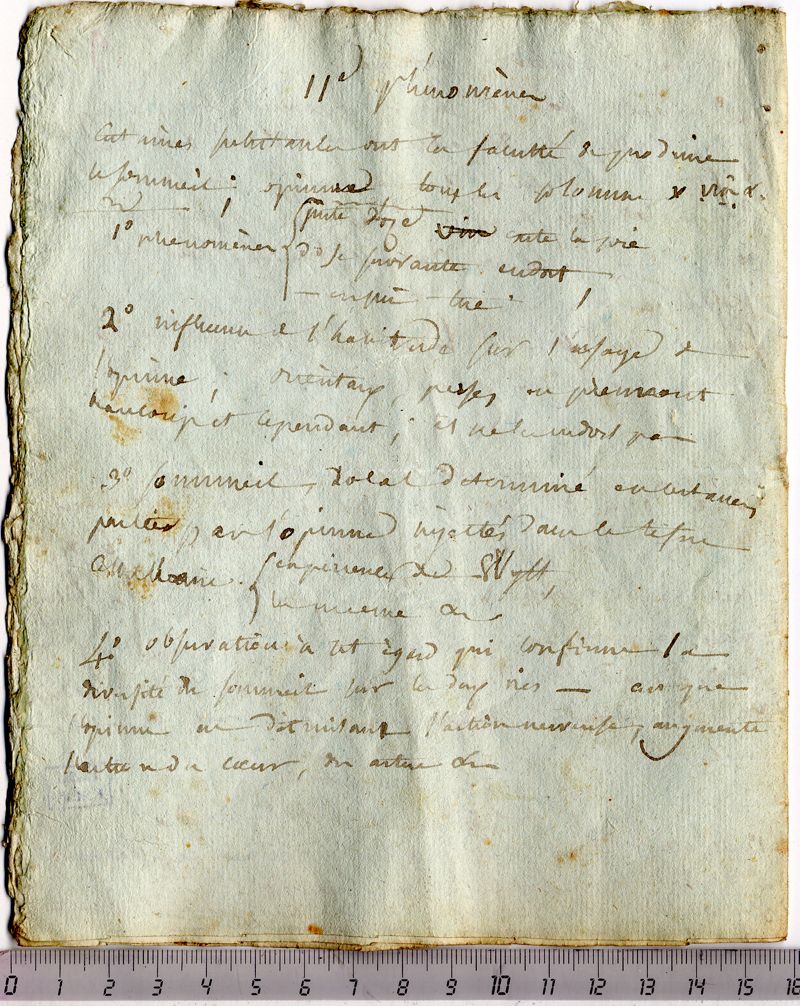 11e phénomènes
Certaines substances ont la faculté de produire
le sommeil : opium, tous les solanum x &.
1º phénomènes petite dose excite la joie
dose suivante endort
— tue
2º influence de l'habitude sur l'usage de
l'opium ; orientaux, perses en prennent
beaucoup et cependant, il ne les endort pas
3º sommeil, total déterminé en certaines
parties, par l'opium injectés dans le tissu
cellulaire. expériences de Wytt,
la mienne &
4º observation à cet égard qui confirme la
diversité de sommeil sur les deux vies — que
l'opium en détruisant l'action nerveuse, augmente
l'action du cœur, des artères &
0 1 2 3 4 5 6 7 8 9 10 11 12 13 14 15 16